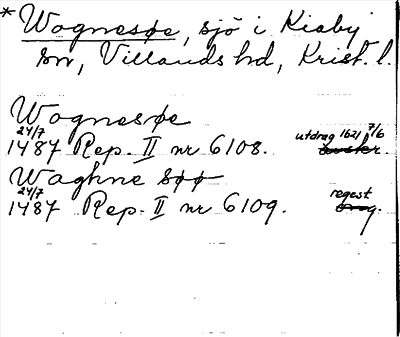 * Wognesøe, sjö i Kiaby
sn, Villands hd, Krist. l.
Wognesøe
24/7 1487 Rep. II nr 6108. utdrag 1621 7/6
Waghne søø
24/7 1487 Rep. II nr 6109. regest